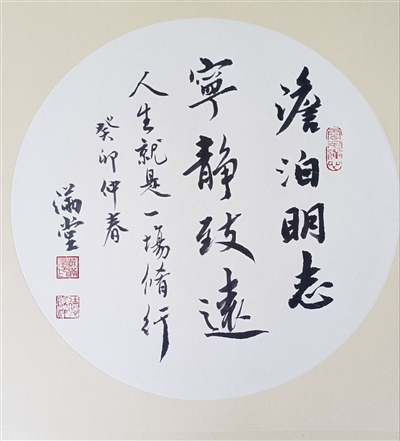 澹泊明志
寧静致遠
人生就是一場脩行
癸卯仲春
滿堂